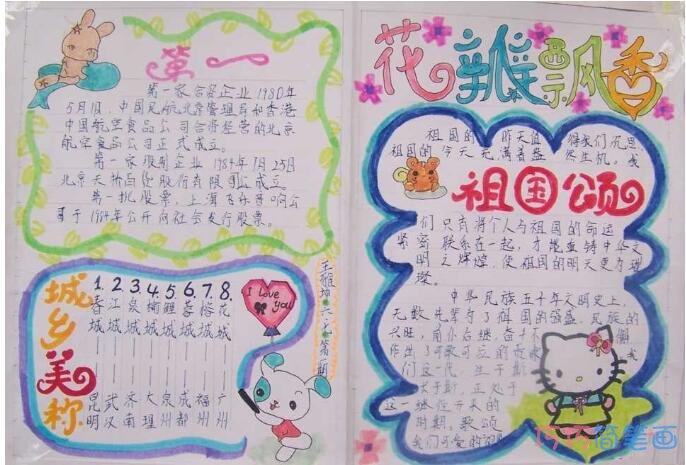 第一
第一家合资企业1980年
5月1日,中国民航北京管理局和香港
中国航空食品公司合资经营的北京
航空食品公司正式成立。
第一家股份企业1984年7月25日
北京天桥百货股份有限公司成立
第一批股票,上海飞乐音响公
司于1984年公开向社会发行股票。
城乡美称
1. 2. 3. 4. 5. 6. 7. 8.
香 江 泉 榆 鲤 蓉 榕 花
城 城 城 城 城 城 城 城
昆 武 济 大 泉 成 福 广
明 汉 南 理 州 都 州 州
I Love
you
花瓣飘香
祖国的 昨天值 得我们沉思
祖国的 今天充满着盎 然生机。我
祖国颂
们只有将个人与祖国的命运
紧密联系在一起,才能重铸中华文
明之辉煌,使祖国的明天更为璀
璨。
中华民族五千年文明史上,
无数先辈为了祖国的强盛,民族的
兴旺,前仆后继,奋
作出了可歌可泣的贡献
们这一代 生于斯
长于斯,正处于
这一继往开来的
时期。歌颂
我们可爱的祖国
巧巧简笔画